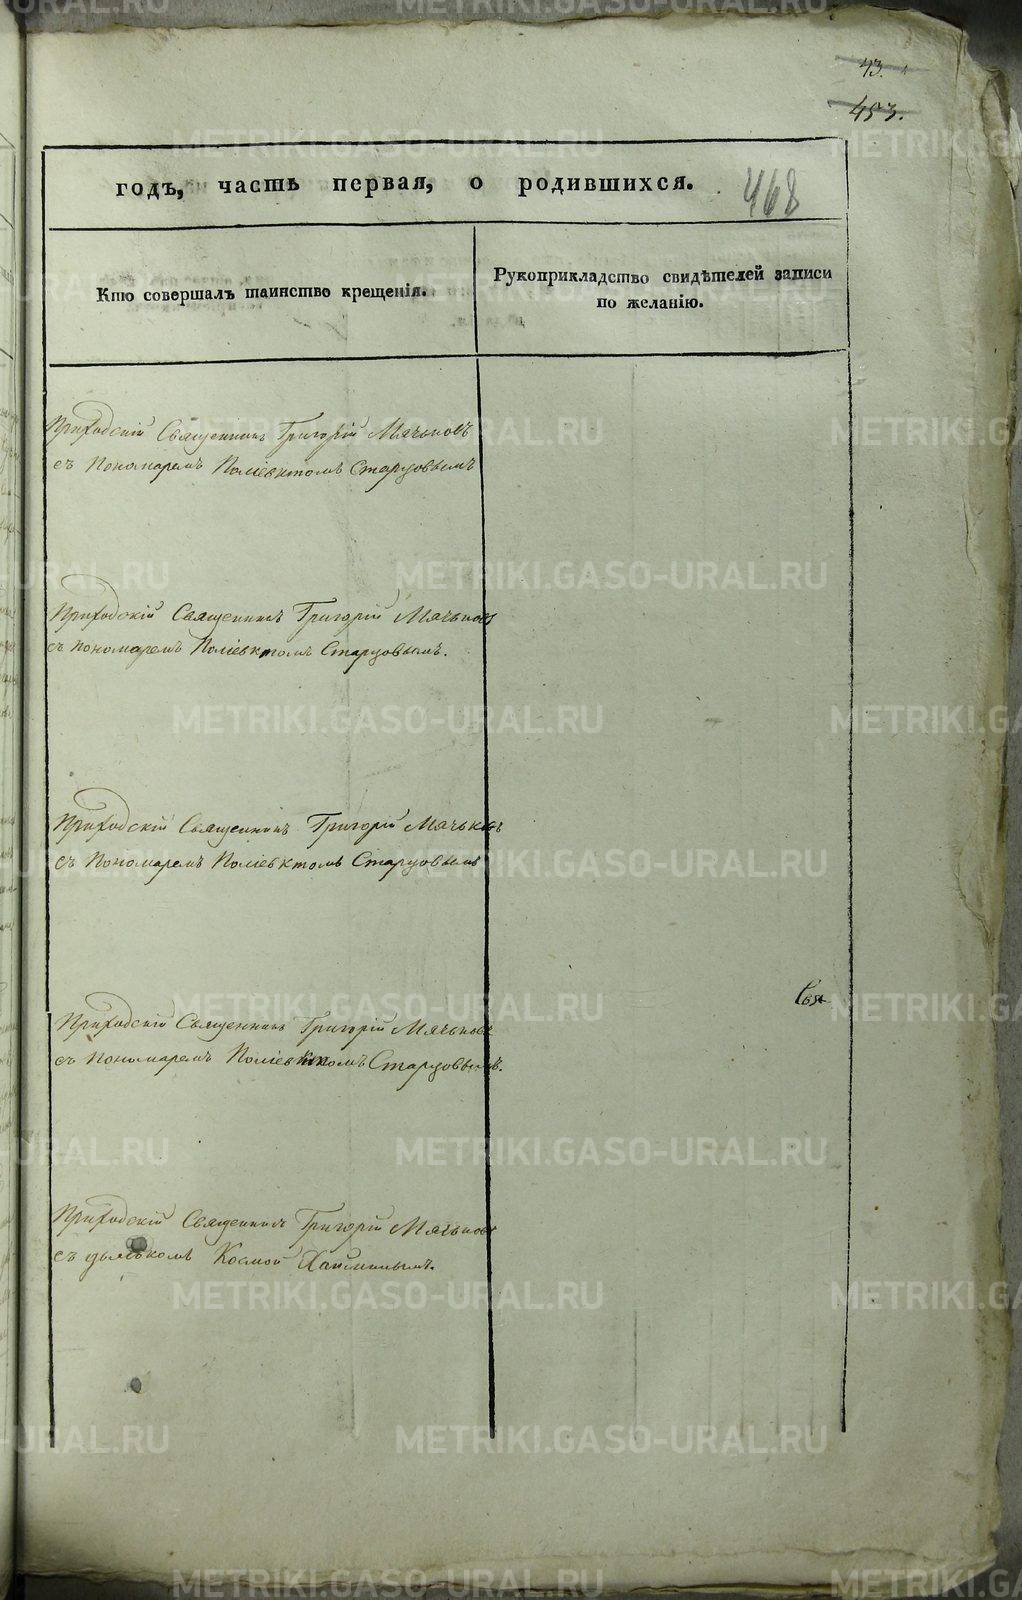 43.
453.
годъ, часть первая, о родившихся. 468
Кто совершалъ таинство крещенія.
Рукоприкладство свидѣтелей записи
по желанію.
Приходскій Священникъ Григорій Мячьковъ
съ Пономаремъ Поліевктомъ Старцовымъ
Приходскій Священникъ Григорій Мячьковъ
съ пономаремъ Поліевктомъ Старцовымъ.
Приходскій Священникъ Григорій Мячьковъ
съ Пономаремъ Поліевктомъ Старцовымъ
Свя
Приходскій Священникъ Григорій Мячьковъ
съ Пономаремъ Поліевктомъ Старцовымъ.
Приходскій Священникъ Григорій Мячьковъ
съ дьячькомъ Космой
METRIKI.GASO-URAL.RU